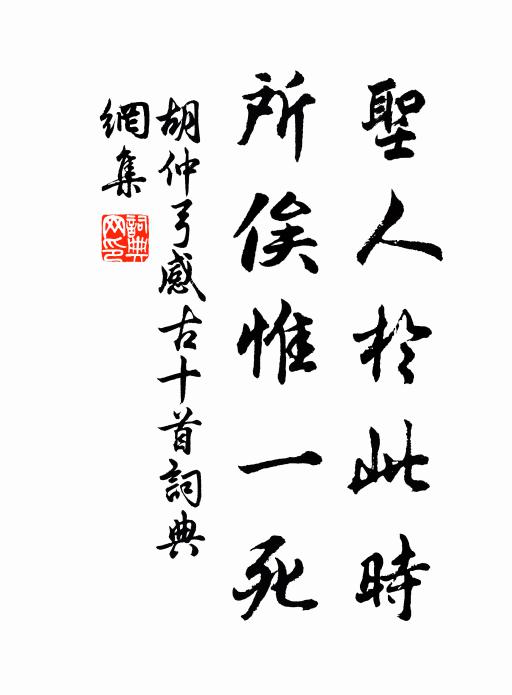 聖人於此時
所俟惟一死
胡仲弓感古十首詞典
網集
詞典网印